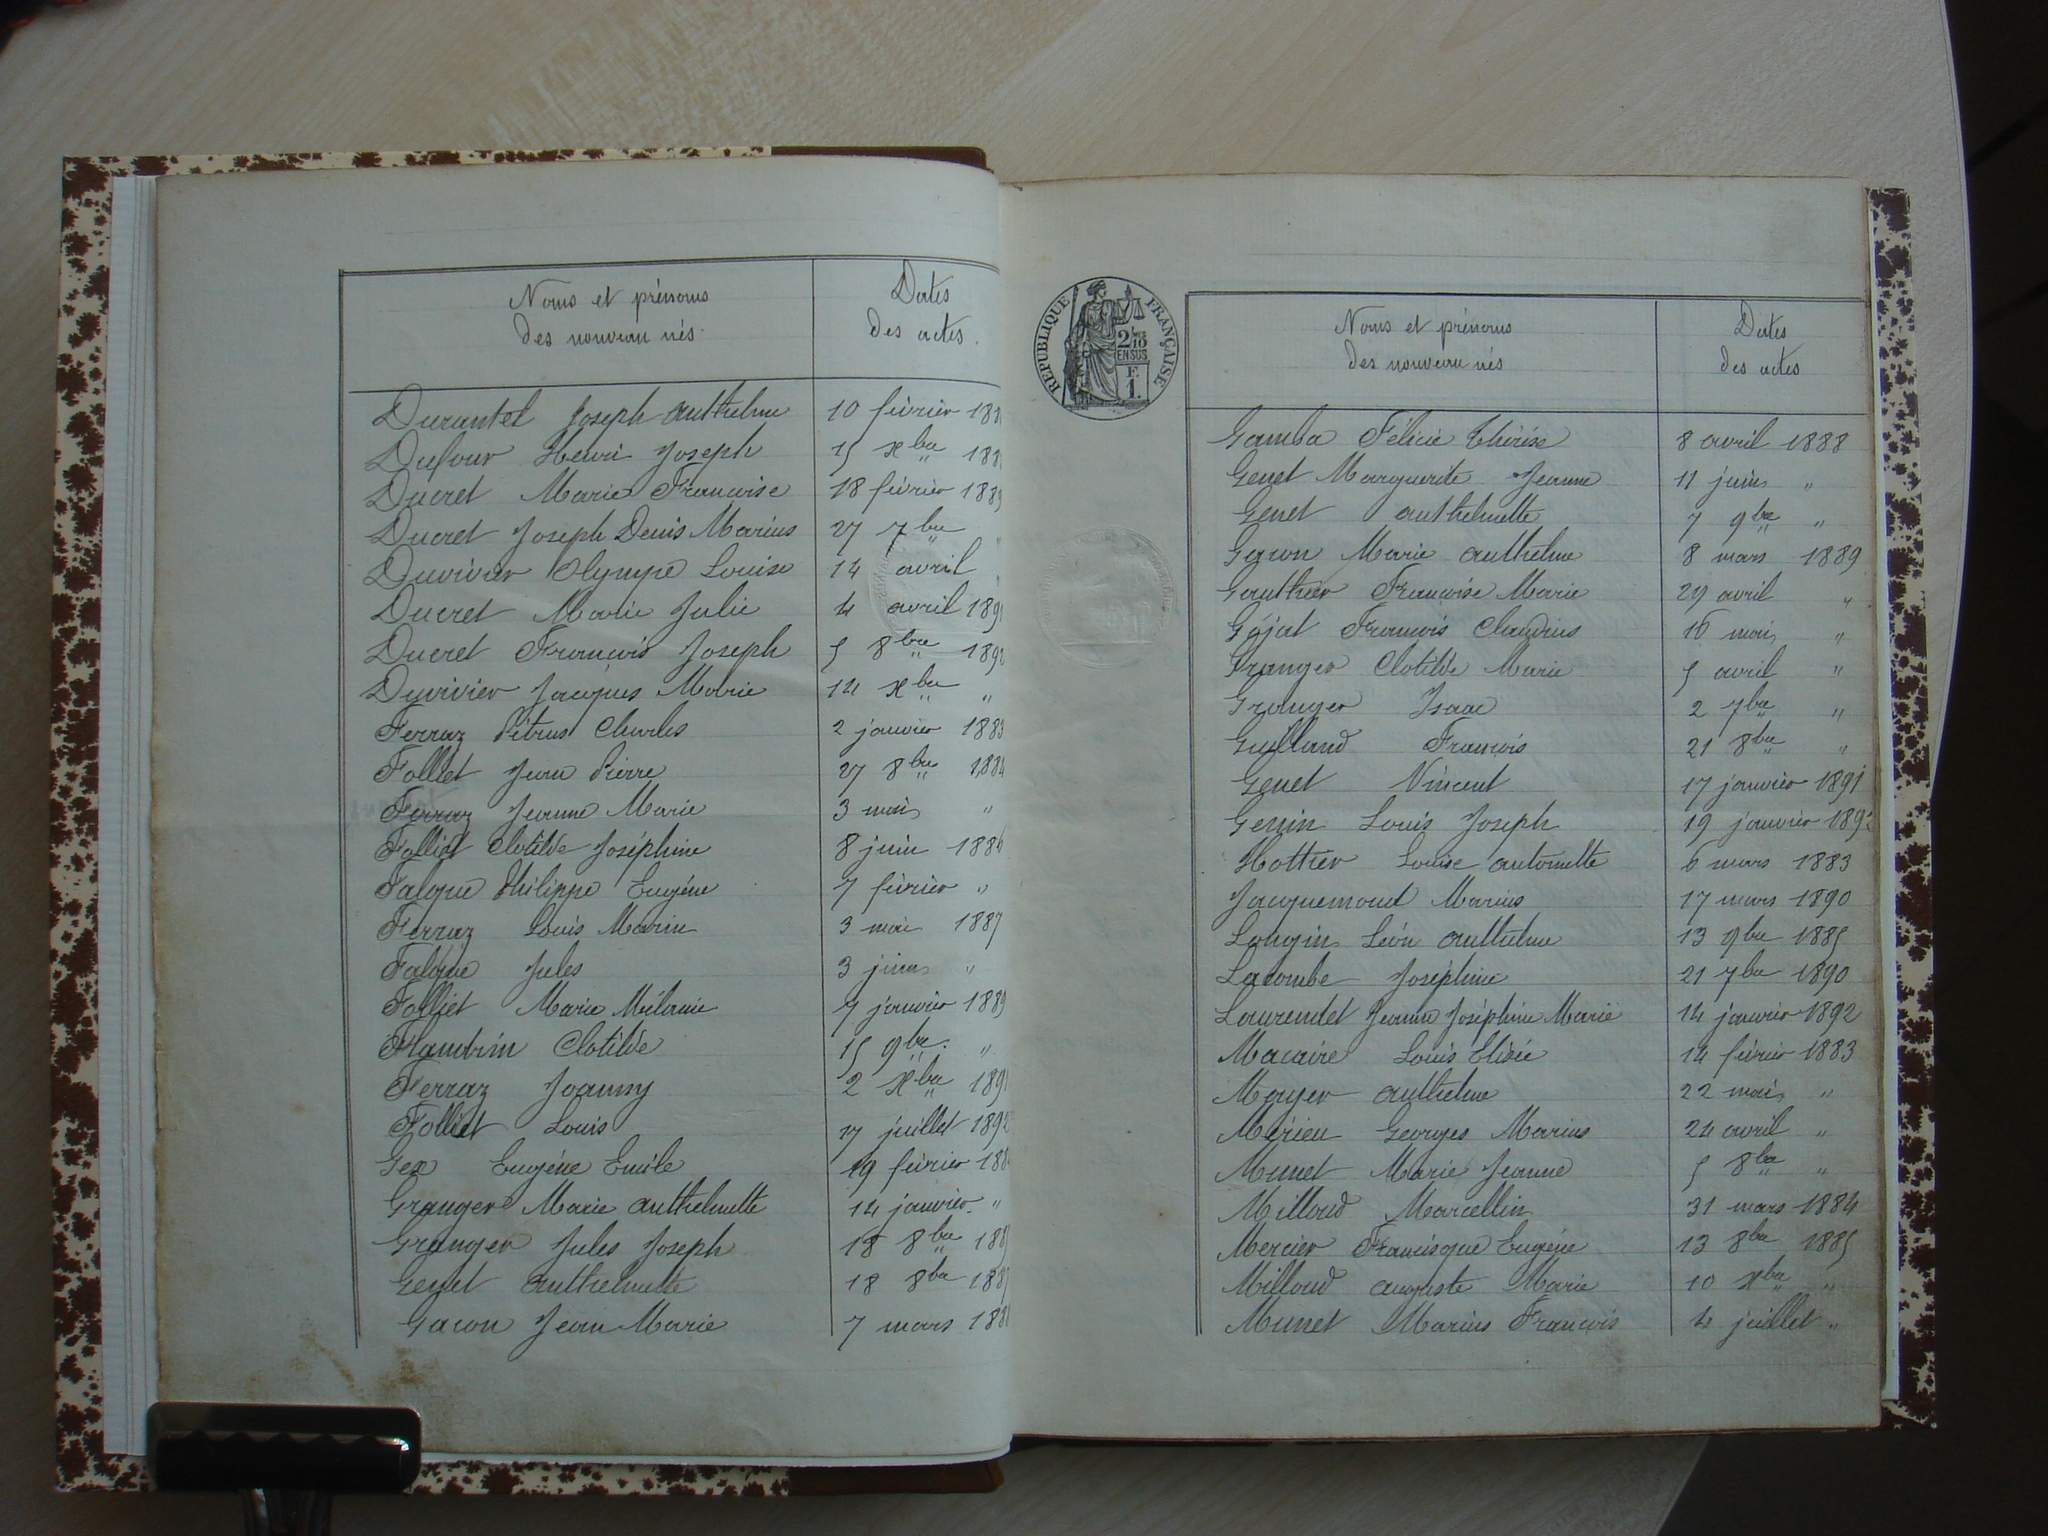 Noms et prénoms
des nouveau nés
Dates
des actes.
Durantet Joseph Anthelme 10 février 188
Dufour Henri Joseph 15 xbre 188
Ducret Marie Françoise 18 février 1889
Ducret Joseph Denis Marius 27 7bre
Duvivier Olympe Louise 14 avril
Ducret Marie Julie 4 avril 189
Ducret François Joseph 5 8bre 1892
Duvivier Jacques Marie 14 xbre "
Ferraz Pétrus Charles 2 janvier 1883
Folliet Jean Pierre 27 8bre 1884
Ferraz Jeanne Marie 3 mai "
Folliet Clotilde Joséphine 8 juin 1886
Falque Philippe Eugène 7 février "
Ferraz Louis Marin 3 mai 1887
Falque Jules 3 juin "
Folliet Marie Mélanie 7 janvier 1889
Flandrin Clotilde 15 9bre "
Ferraz Joanny 2 xbre 189
Folliet Louis 17 juillet 1892
Gex Eugène Emile 19 février 188
Granger Marie Anthelmette 14 janvier "
Granger Jules Joseph 18 8bre 188
Genet Anthelmette 18 8bre 188
Gacon Jean Marie 7 mars 188
RÉPUBLIQUE FRANÇAISE
2/10
EN SUS
F.
1.
Noms et prénoms
des nouveau nés
Dates
des actes
Gamba Félicie Thérèse 8 avril 1888
Genet Marguerite Jeanne 11 juin "
Genet Anthelmette 7 9bre "
Gacon Marie Anthelme 8 mars 1889
Gauthier Françoise Marie 29 avril "
Géjat François Claudius 16 mai "
Granger Clotilde Marie 5 avril "
Granger Isaac 2 7bre "
Guilland François 21 8bre "
Genet Vincent 17 janvier 1891
Genin Louis Joseph 19 janvier 1892
Hottier Louise Antoinette 6 mars 1883
Jacquemond Marius 17 mars 1890
Longin Léon Anthelme 13 9bre 1885
Lacombe Joséphine 21 7bre 1890
Laurendet Jeanne Joséphine Marie 14 janvier 1892
Macaire Louis Elisée 14 février 1883
Mayer Anthelme 22 mai "
Mérieu Georges Marius 24 avril "
Munet Marie Jeanne 5 8bre "
Milloud Marcellin 31 mars 1884
Mercier Francisque Eugène 13 8bre 1885
Milloud Auguste Marie 10 xbre "
Munet Marius François 4 juillet "